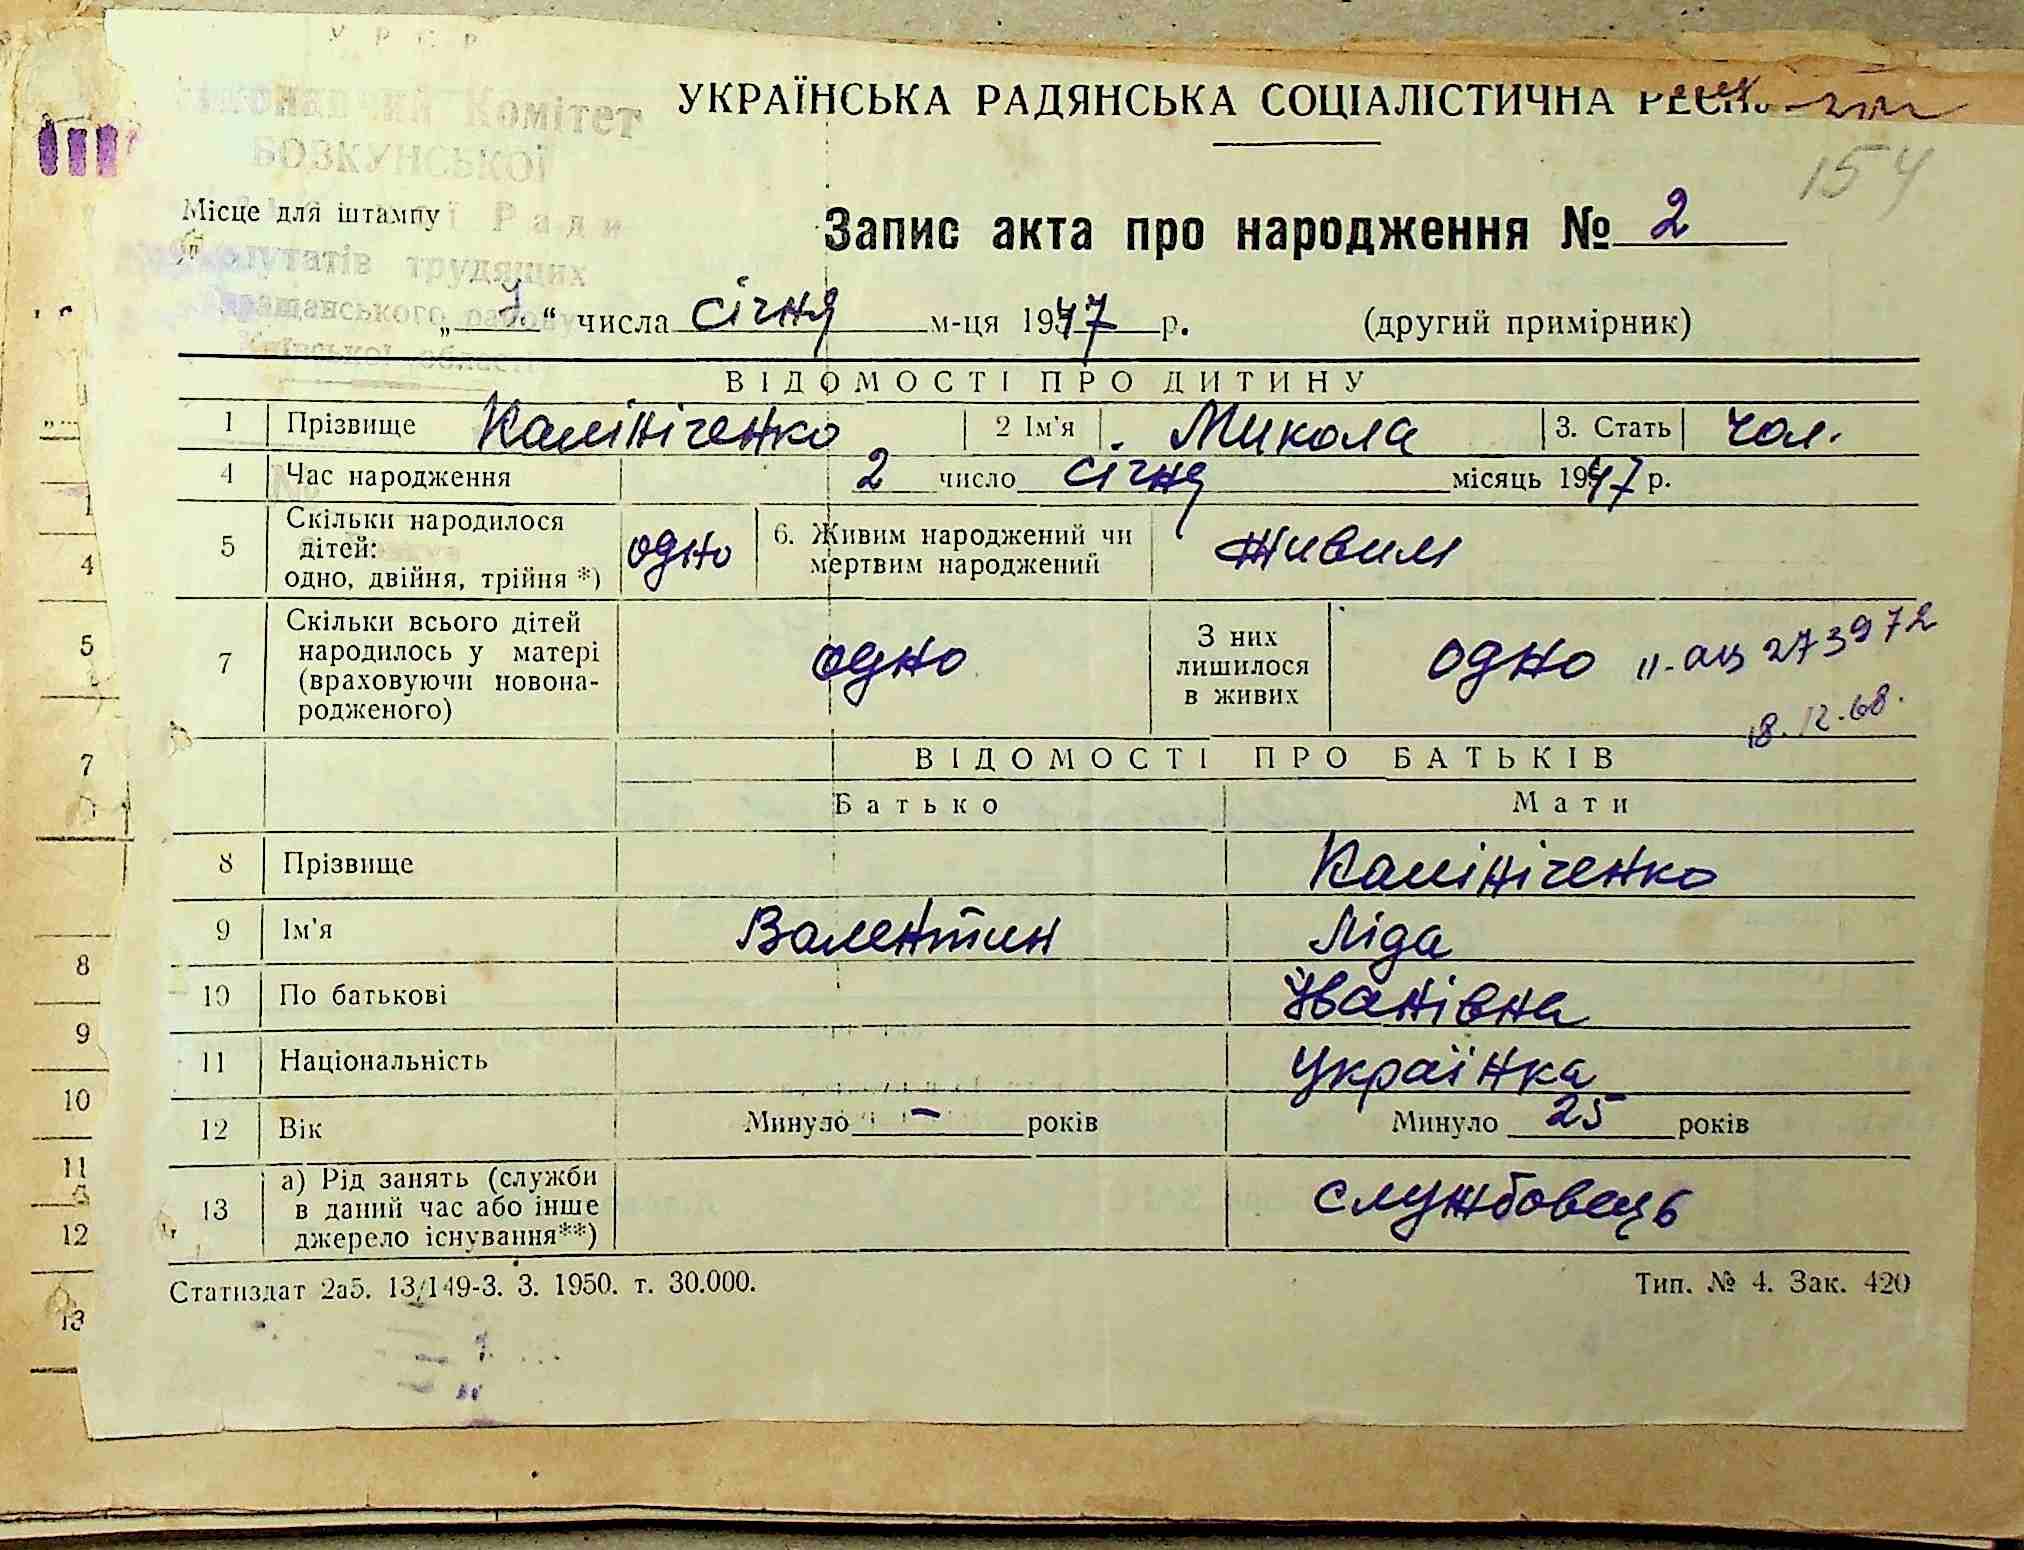 У Р С Р
Комітет
БОЗКУНСЬКОЇ
УКРАЇНСЬКА РАДЯНСЬКА СОЦІАЛІСТИЧНА
154
Місце для штампу
Ради
депутатів трудящих
району
Київської області
Запис акта про народження № 2
„ “ числа січня м-ця 1947 р. (другий примірник)
ВІДОМОСТІ ПРО ДИТИНУ
1 Прізвище Калініченко 2 Ім'я Микола 3. Стать чол.
4 Час народження 2 число січня місяць 1947 р.
5 Скільки народилося дітей: одно, двійня, трійня *) одно 6. Живим народжений чи мертвим народжений живим
7 Скільки всього дітей народилось у матері (враховуючи новонародженого) одно З них лишилося в живих одно II-АЦ 273972
18.12.68.
ВІДОМОСТІ ПРО БАТЬКІВ
Батько Мати
8 Прізвище Калініченко
9 Ім'я Валентин Ліда
10 По батькові Іванівна
11 Національність українка
12 Вік Минуло — років Минуло 25 років
13 а) Рід занять (служби в даний час або інше джерело існування**) службовець
Статиздат 2а5. 13/149-3. 3. 1950. т. 30.000. Тип. № 4. Зак. 420
4
5
7
8
9
10
11
12
13